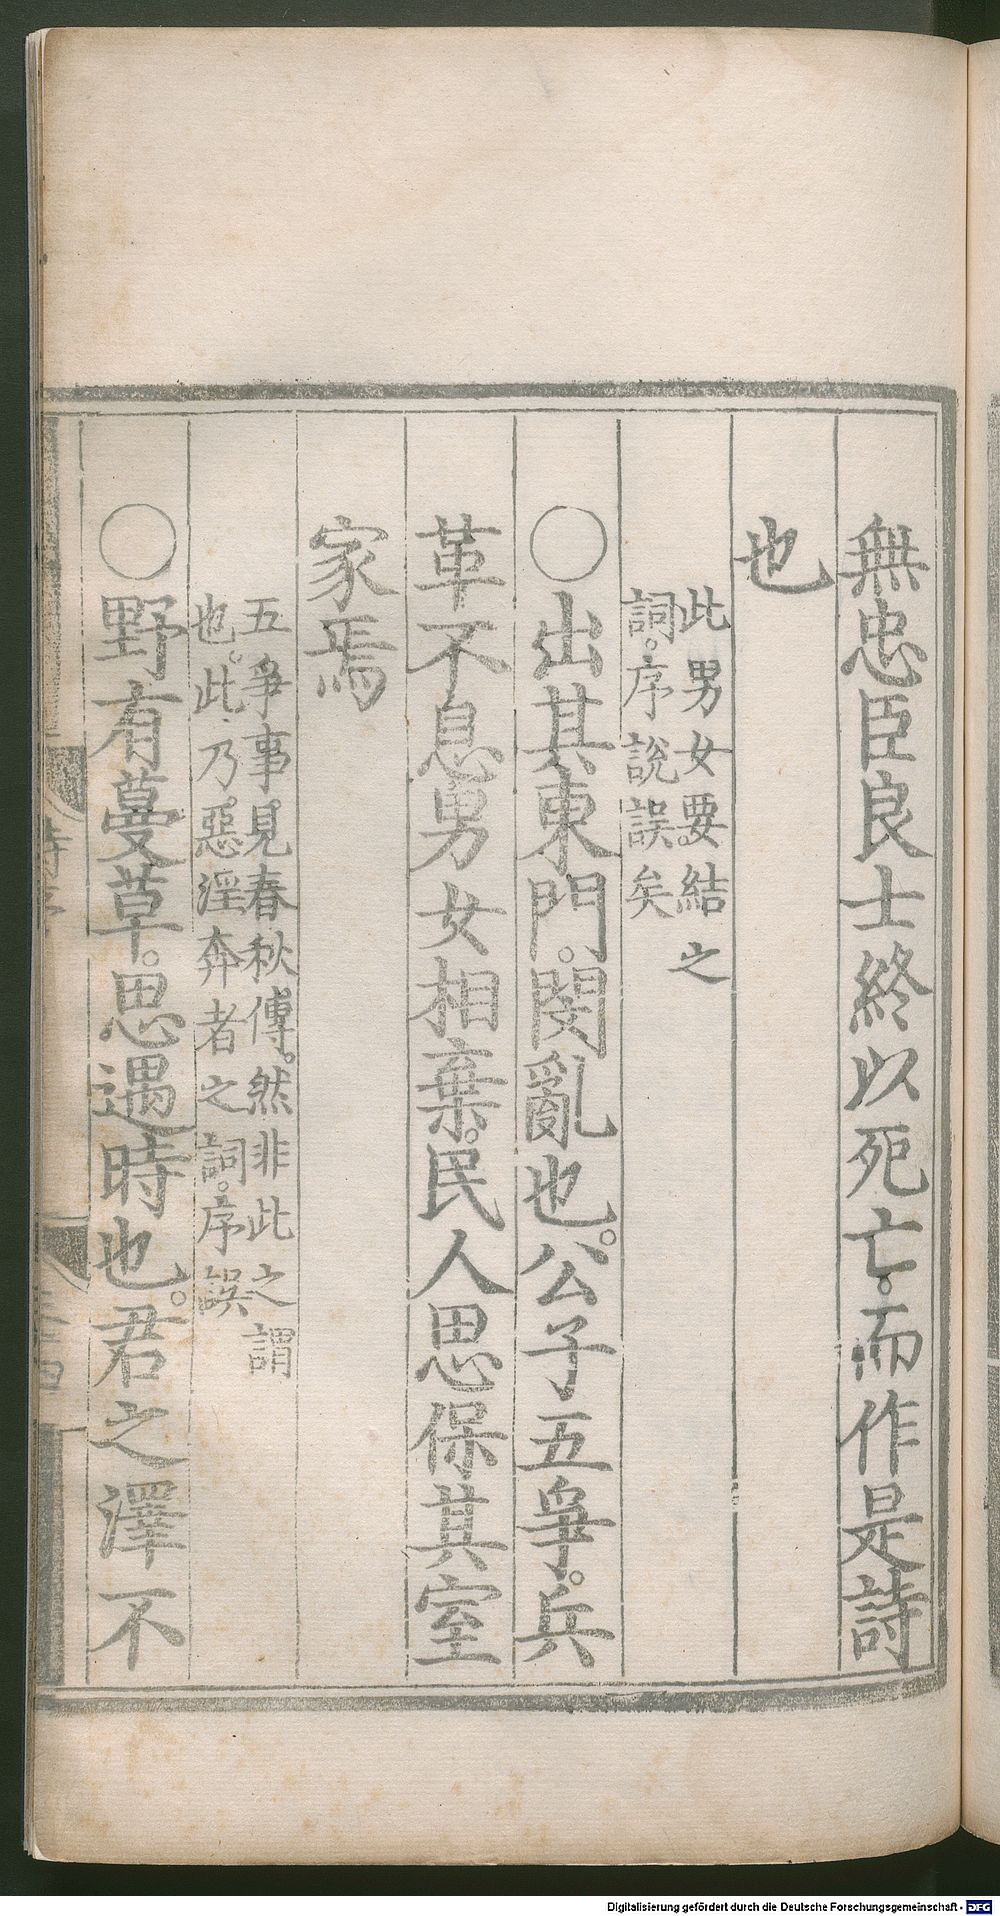 無忠臣良士終以死亡。而作是詩
也
此男女要結之
詞。序說誤矣
○出其東門。閔亂也。公子五爭。兵
革不息男女相棄。民人思保其室
家焉
五爭事。見春秋傳。然非此之謂
也。此乃惡淫奔者之詞。序誤
○野有蔓草。思遇時也。君之澤不
Digitalisierung gefördert durch die Deutsche Forschungsgemeinschaft - DFG